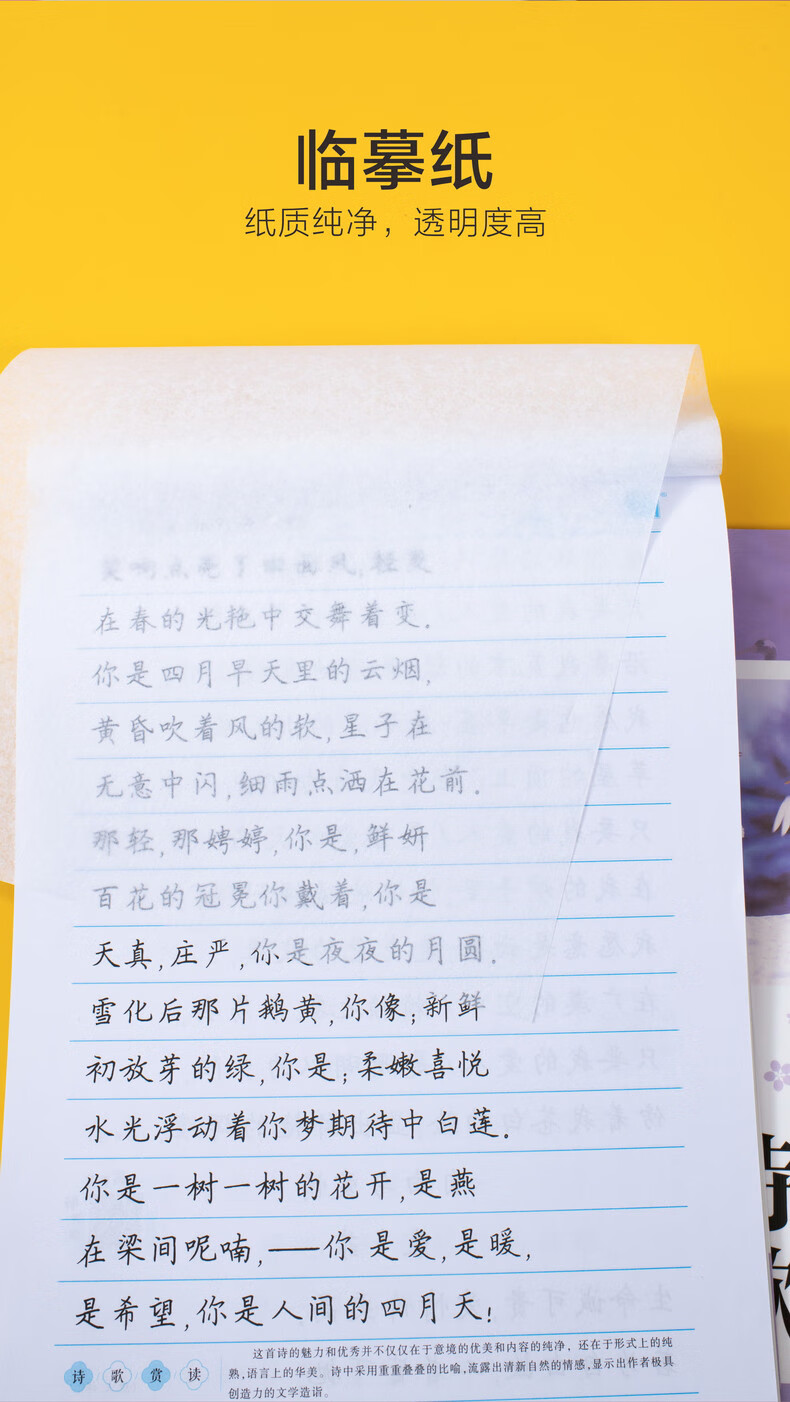 临摹纸
纸质纯净，透明度高
笑响点亮了四面风,轻灵
在春的光艳中交舞着变.
你是四月早天里的云烟,
黄昏吹着风的软,星子在
无意中闪,细雨点洒在花前.
那轻,那娉婷,你是,鲜妍
百花的冠冕你戴着,你是
天真,庄严,你是夜夜的月圆.
雪化后那片鹅黄,你像;新鲜
初放芽的绿,你是;柔嫩喜悦
水光浮动着你梦期待中白莲.
你是一树一树的花开,是燕
在梁间呢喃,——你 是爱,是暖,
是希望,你是人间的四月天!
诗歌赏读
这首诗的魅力和优秀并不仅仅在于意境的优美和内容的纯净，还在于形式上的纯
熟,语言上的华美。诗中采用重重叠叠的比喻,流露出清新自然的情感,显示出作者极具
创造力的文学造诣。